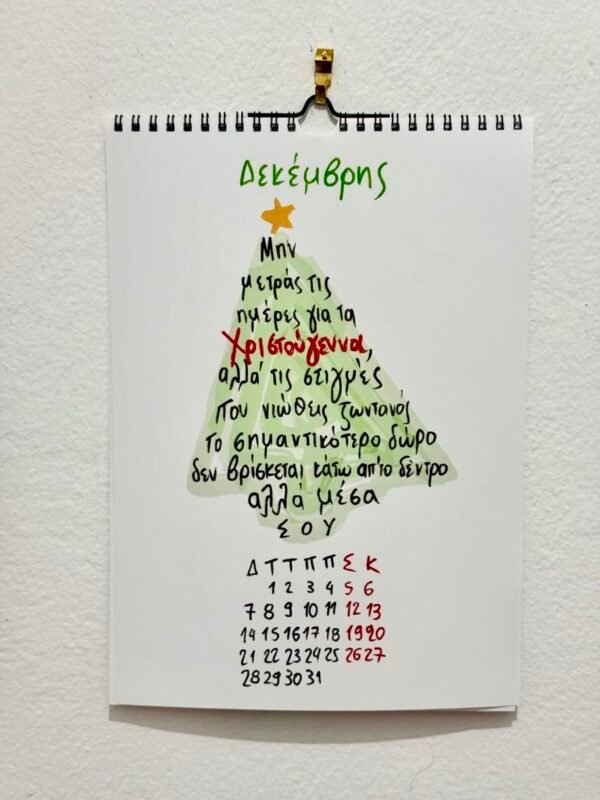 Δεκέμβρης
Μην
μετράς τις
ημέρες για τα
Χριστούγεννα,
αλλά τις στιγμές
που νιώθεις ζωντανός
το σημαντικότερο δώρο
δεν βρίσκεται κάτω απ'το δέντρο
αλλά μέσα
ΣΟΥ
Δ Τ Τ Π Π Σ Κ
1 2 3 4 5 6
7 8 9 10 11 12 13
14 15 16 17 18 19 20
21 22 23 24 25 26 27
28 29 30 31